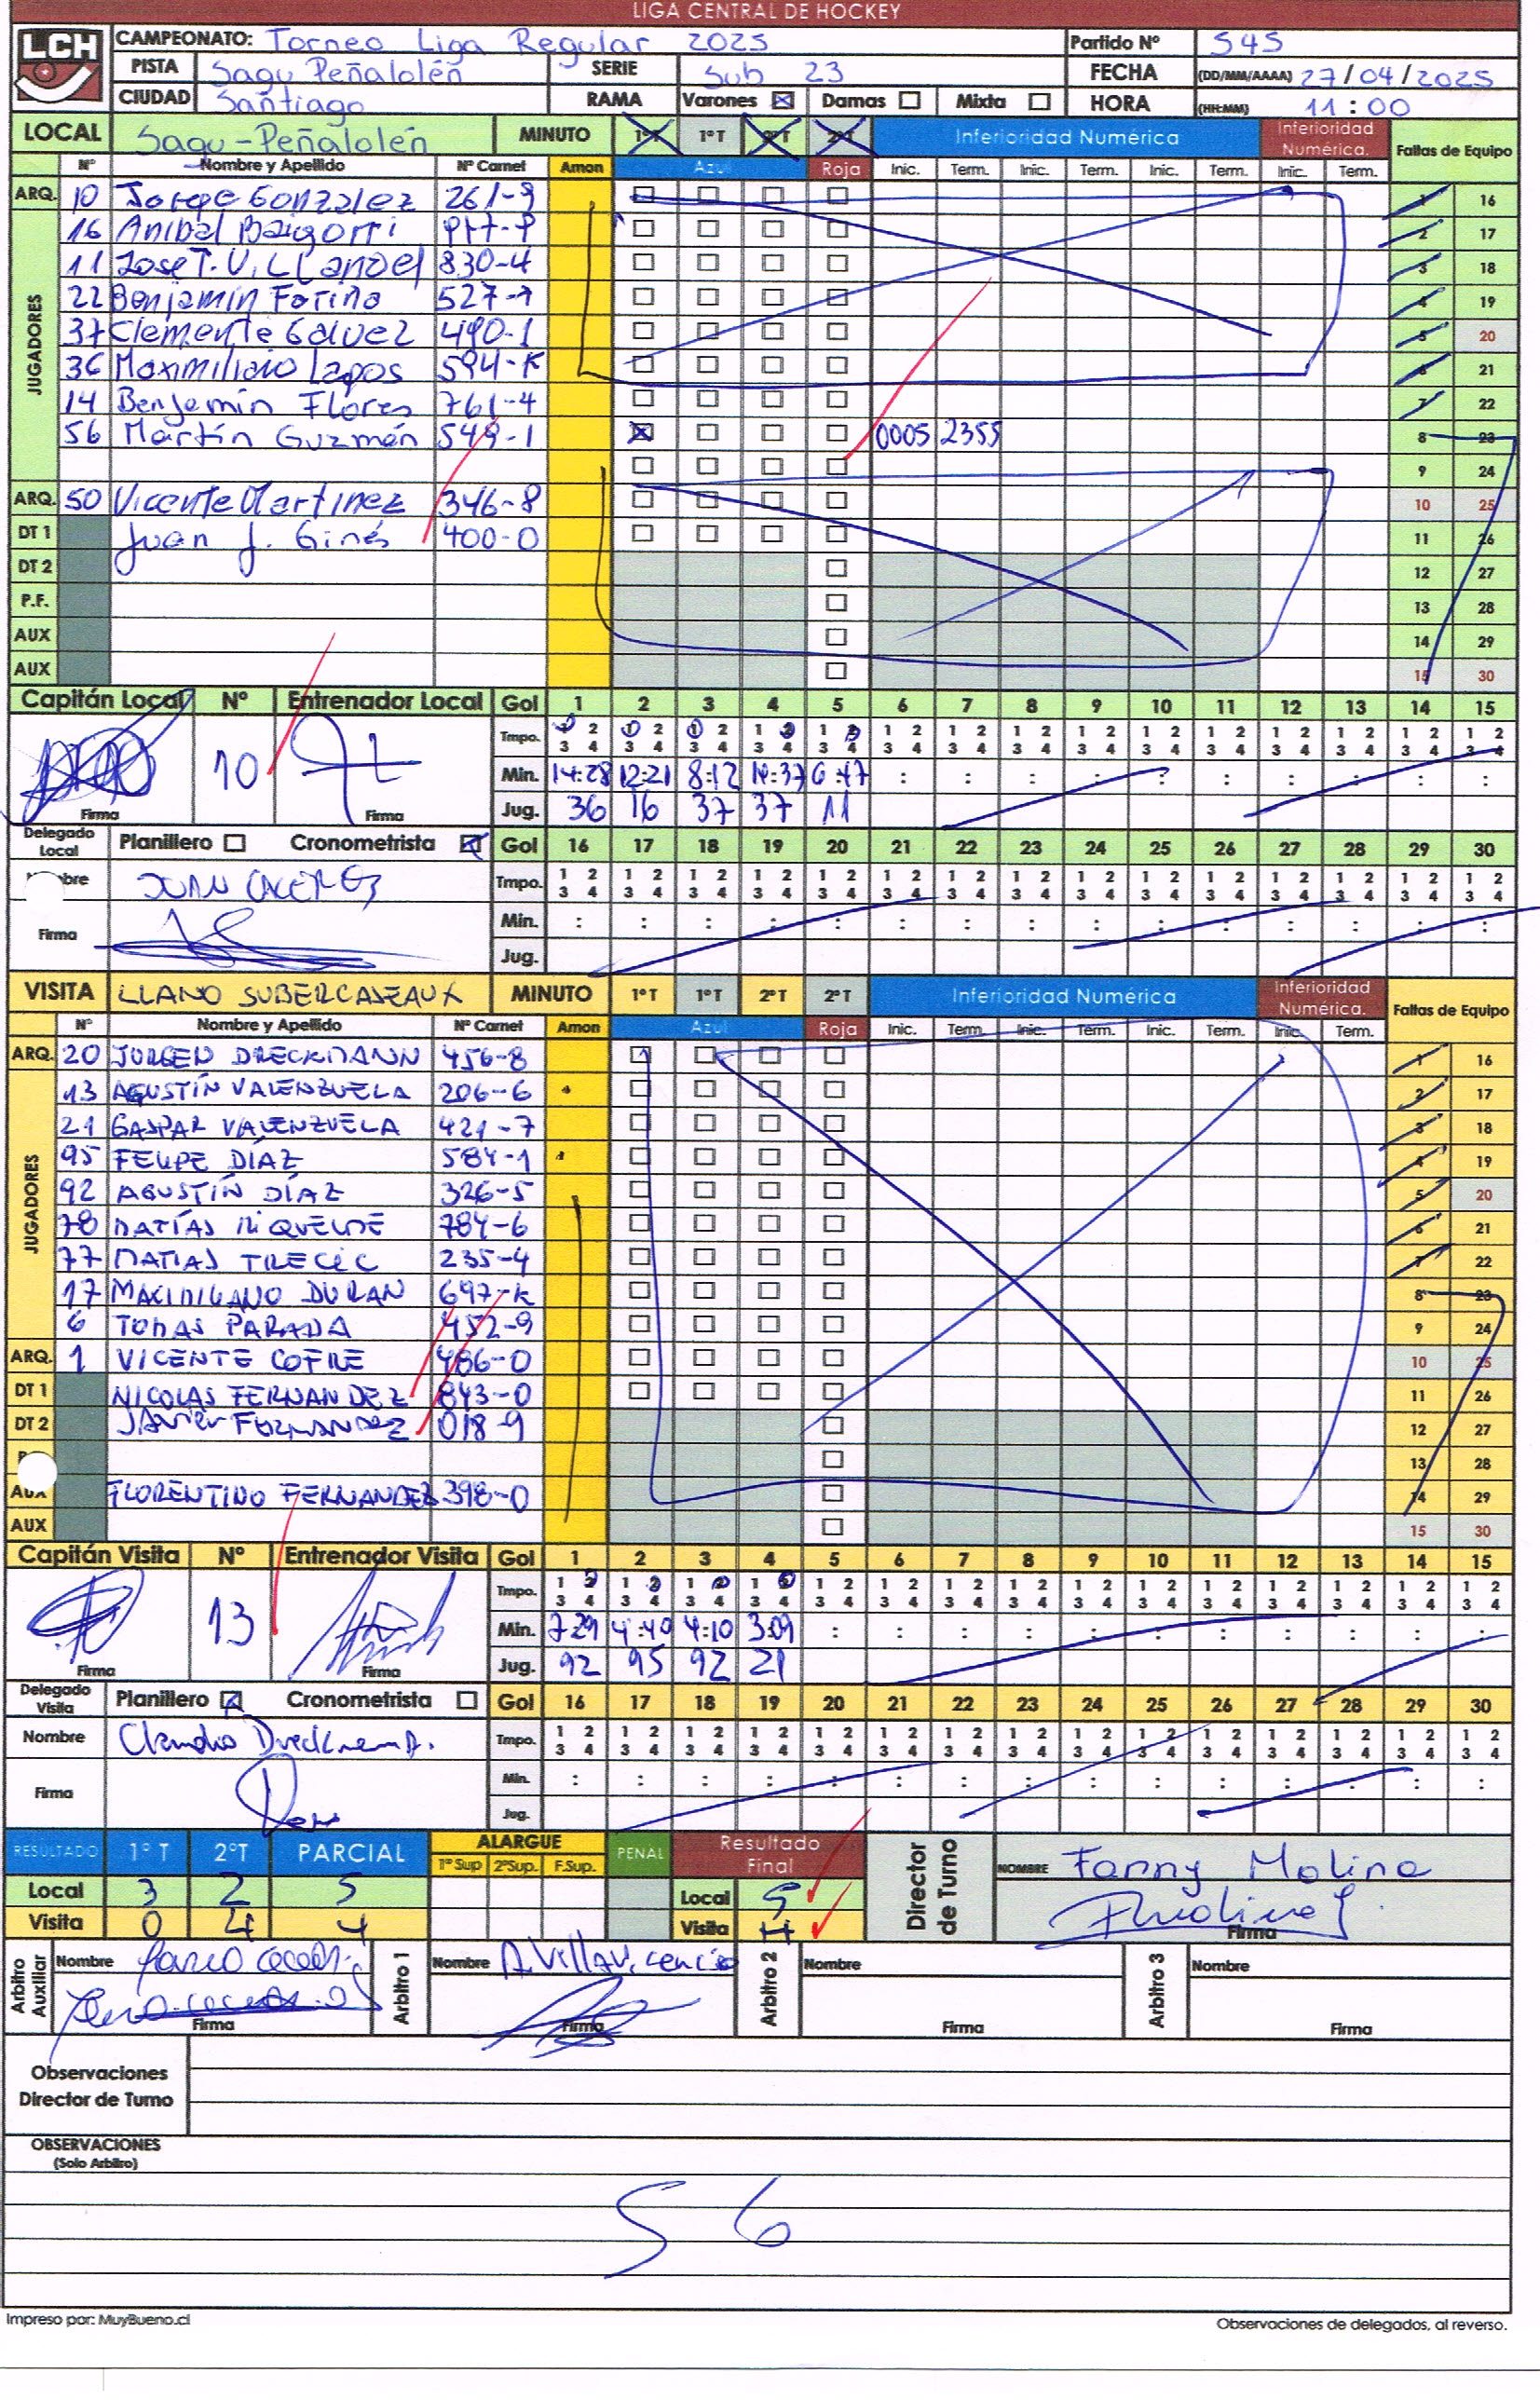 LIGA CENTRAL DE HOCKEY
LCH
CAMPEONATO: Torneo Liga Regular 2025 Partido Nº 545
PISTA Sagu Peñalolén SERIE Sub 23 FECHA (DD/MM/AAAA) 27/04/2025
CIUDAD Santiago RAMA Varones ☒ Damas ☐ Mixta ☐ HORA (HH:MM) 11:00
LOCAL Sagu-Peñalolén MINUTO 1º T 1º T 2º T 2º T Inferioridad Numérica Inferioridad Numérica. Faltas de Equipo
Nº Nombre y Apellido Nº Carnet Amon Azul Roja Inic. Term. Inic. Term. Inic. Term. Inic. Term.
ARQ. 10 Jorge Gonzalez 261-9 1 16
JUGADORES
16 Anibal Baigorri 2 17
11 José T. 830-4 3 18
22 Benjamin Fariña 527-1 4 19
37 Clemente Galvez 490-1 5 20
36 Maximiliano Lagos 594-K 6 21
14 Benjamin Flores 761-4 7 22
56 Martín Guzmán 549-1 ☒ 0005 2355 8 23
9 24
ARQ. 50 Vicente Martinez 346-8 10 25
DT 1 Juan J. Ginés 400-0 11 26
DT 2 12 27
P.F. 13 28
AUX 14 29
AUX 15 30
Capitán Local Nº Entrenador Local Gol 1 2 3 4 5 6 7 8 9 10 11 12 13 14 15
Tmpo. 1 2 3 4 1 2 3 4 1 2 3 4 1 2 3 4 1 2 3 4 1 2 3 4 1 2 3 4 1 2 3 4 1 2 3 4 1 2 3 4 1 2 3 4 1 2 3 4 1 2 3 4 1 2 3 4 1 2 3 4
10 Min. 14:28 12:21 8:12 14:37 6:47 : : : : : : : : : :
Firma Firma Jug. 36 16 37 37 11
Delegado Local Planillero ☐ Cronometrista ☒ Gol 16 17 18 19 20 21 22 23 24 25 26 27 28 29 30
Nombre JUAN CACERES Tmpo. 1 2 3 4 1 2 3 4 1 2 3 4 1 2 3 4 1 2 3 4 1 2 3 4 1 2 3 4 1 2 3 4 1 2 3 4 1 2 3 4 1 2 3 4 1 2 3 4 1 2 3 4 1 2 3 4 1 2 3 4
Firma Min. : : : : : : : : : : : : : : :
Jug.
VISITA LLANO SUBERCASEAUX MINUTO 1º T 1º T 2º T 2º T Inferioridad Numérica Inferioridad Numérica. Faltas de Equipo
Nº Nombre y Apellido Nº Carnet Amon Azul Roja Inic. Term. Inic. Term. Inic. Term. Inic. Term.
ARQ. 20 JURGEN DRECKMANN 456-8 1 16
JUGADORES
13 AGUSTÍN VALENZUELA 206-6 2 17
21 GASPAR VALENZUELA 421-7 3 18
95 FELIPE DÍAZ 584-1 4 19
92 AGUSTÍN DÍAZ 326-5 5 20
78 MATÍAS RIQUELME 784-6 6 21
77 MATIAS TRECIC 235-4 7 22
17 MAXIMILIANO DURAN 697-K 8 23
6 TOMAS PARADA 452-9 9 24
ARQ. 1 VICENTE COFRE 486-0 10 25
DT 1 NICOLAS FERNANDEZ 843-0 11 26
DT 2 JAVIER FERNANDEZ 018-9 12 27
13 28
AUX FLORENTINO FERNANDEZ 398-0 14 29
AUX 15 30
Capitán Visita Nº Entrenador Visita Gol 1 2 3 4 5 6 7 8 9 10 11 12 13 14 15
Tmpo. 1 2 3 4 1 2 3 4 1 2 3 4 1 2 3 4 1 2 3 4 1 2 3 4 1 2 3 4 1 2 3 4 1 2 3 4 1 2 3 4 1 2 3 4 1 2 3 4 1 2 3 4 1 2 3 4 1 2 3 4
13 Min. 7:29 4:40 4:10 3:09 : : : : : : : : : : :
Firma Firma Jug. 92 95 92 21
Delegado Visita Planillero ☒ Cronometrista ☐ Gol 16 17 18 19 20 21 22 23 24 25 26 27 28 29 30
Nombre Claudio Tmpo. 1 2 3 4 1 2 3 4 1 2 3 4 1 2 3 4 1 2 3 4 1 2 3 4 1 2 3 4 1 2 3 4 1 2 3 4 1 2 3 4 1 2 3 4 1 2 3 4 1 2 3 4 1 2 3 4 1 2 3 4
Firma Min. : : : : : : : : : : : : : : :
Jug.
RESULTADO 1º T 2ºT PARCIAL ALARGUE 1º Sup 2ºSup. F.Sup. PENAL Resultado Final Director de Turno NOMBRE Fanny Molina
Local 3 2 5 Local 5
Visita 0 4 4 Visita 4 Firma
Arbitro Auxiliar Nombre Arbitro 1 Nombre A. Villavicencio Arbitro 2 Nombre Arbitro 3 Nombre
Firma Firma Firma Firma
Observaciones
Director de Turno
OBSERVACIONES
(Solo Arbitro)
S 6
Impreso por: MuyBueno.cl Observaciones de delegados, al reverso.